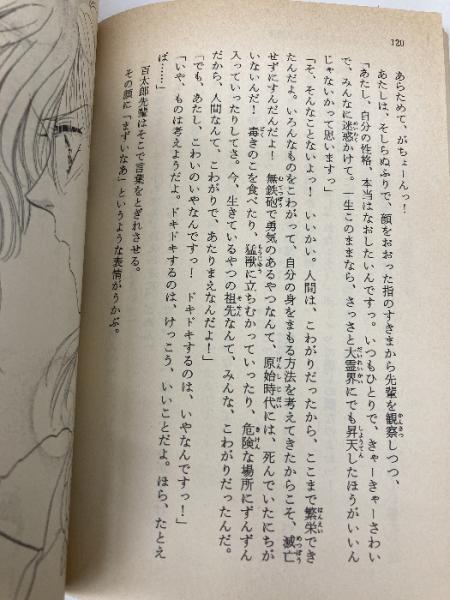 120
あらためて、がちょーんっ！
あたしは、そしらぬふりで、顔をおおった指のすきまから先輩を観察しつつ、
「あたし、自分の性格、本当はなおしたいんですっ。いつもひとりで、きゃーきゃーさわい
で、みんなに迷惑かけて。一生このままなら、さっさと大霊界にでも昇天したほうがいいん
じゃないかって思いますっ」
「そ、そんなことないよっ！　いいかい。人間は、こわがりだったから、ここまで繁栄でき
たんだよ。いろんなものをこわがって、自分の身をまもる方法を考えてきたからこそ、滅亡
せずにすんだんだよ！　無鉄砲で勇気のあるやつなんて、原始時代には、死んでいたにちが
いないんだ！　毒きのこを食べたり、猛獣に立ちむかっていったり、危険な場所にずんずん
入っていったりしてさ。今、生きているやつの祖先なんて、みんな、こわがりだったんだ。
だから、人間なんて、こわがりで、あたりまえなんだよ！」
「でも、あたし、こわいのいやなんですっ！　ドキドキするのは、いやなんですっ！」
「いや、ものは考えようだよ。ドキドキするのは、けっこう、いいことだよ。ほら、たとえ
ば……」
百太郎先輩はそこで言葉をとぎれさせる。
その顔に「まずいなあ」というような表情がうかぶ。